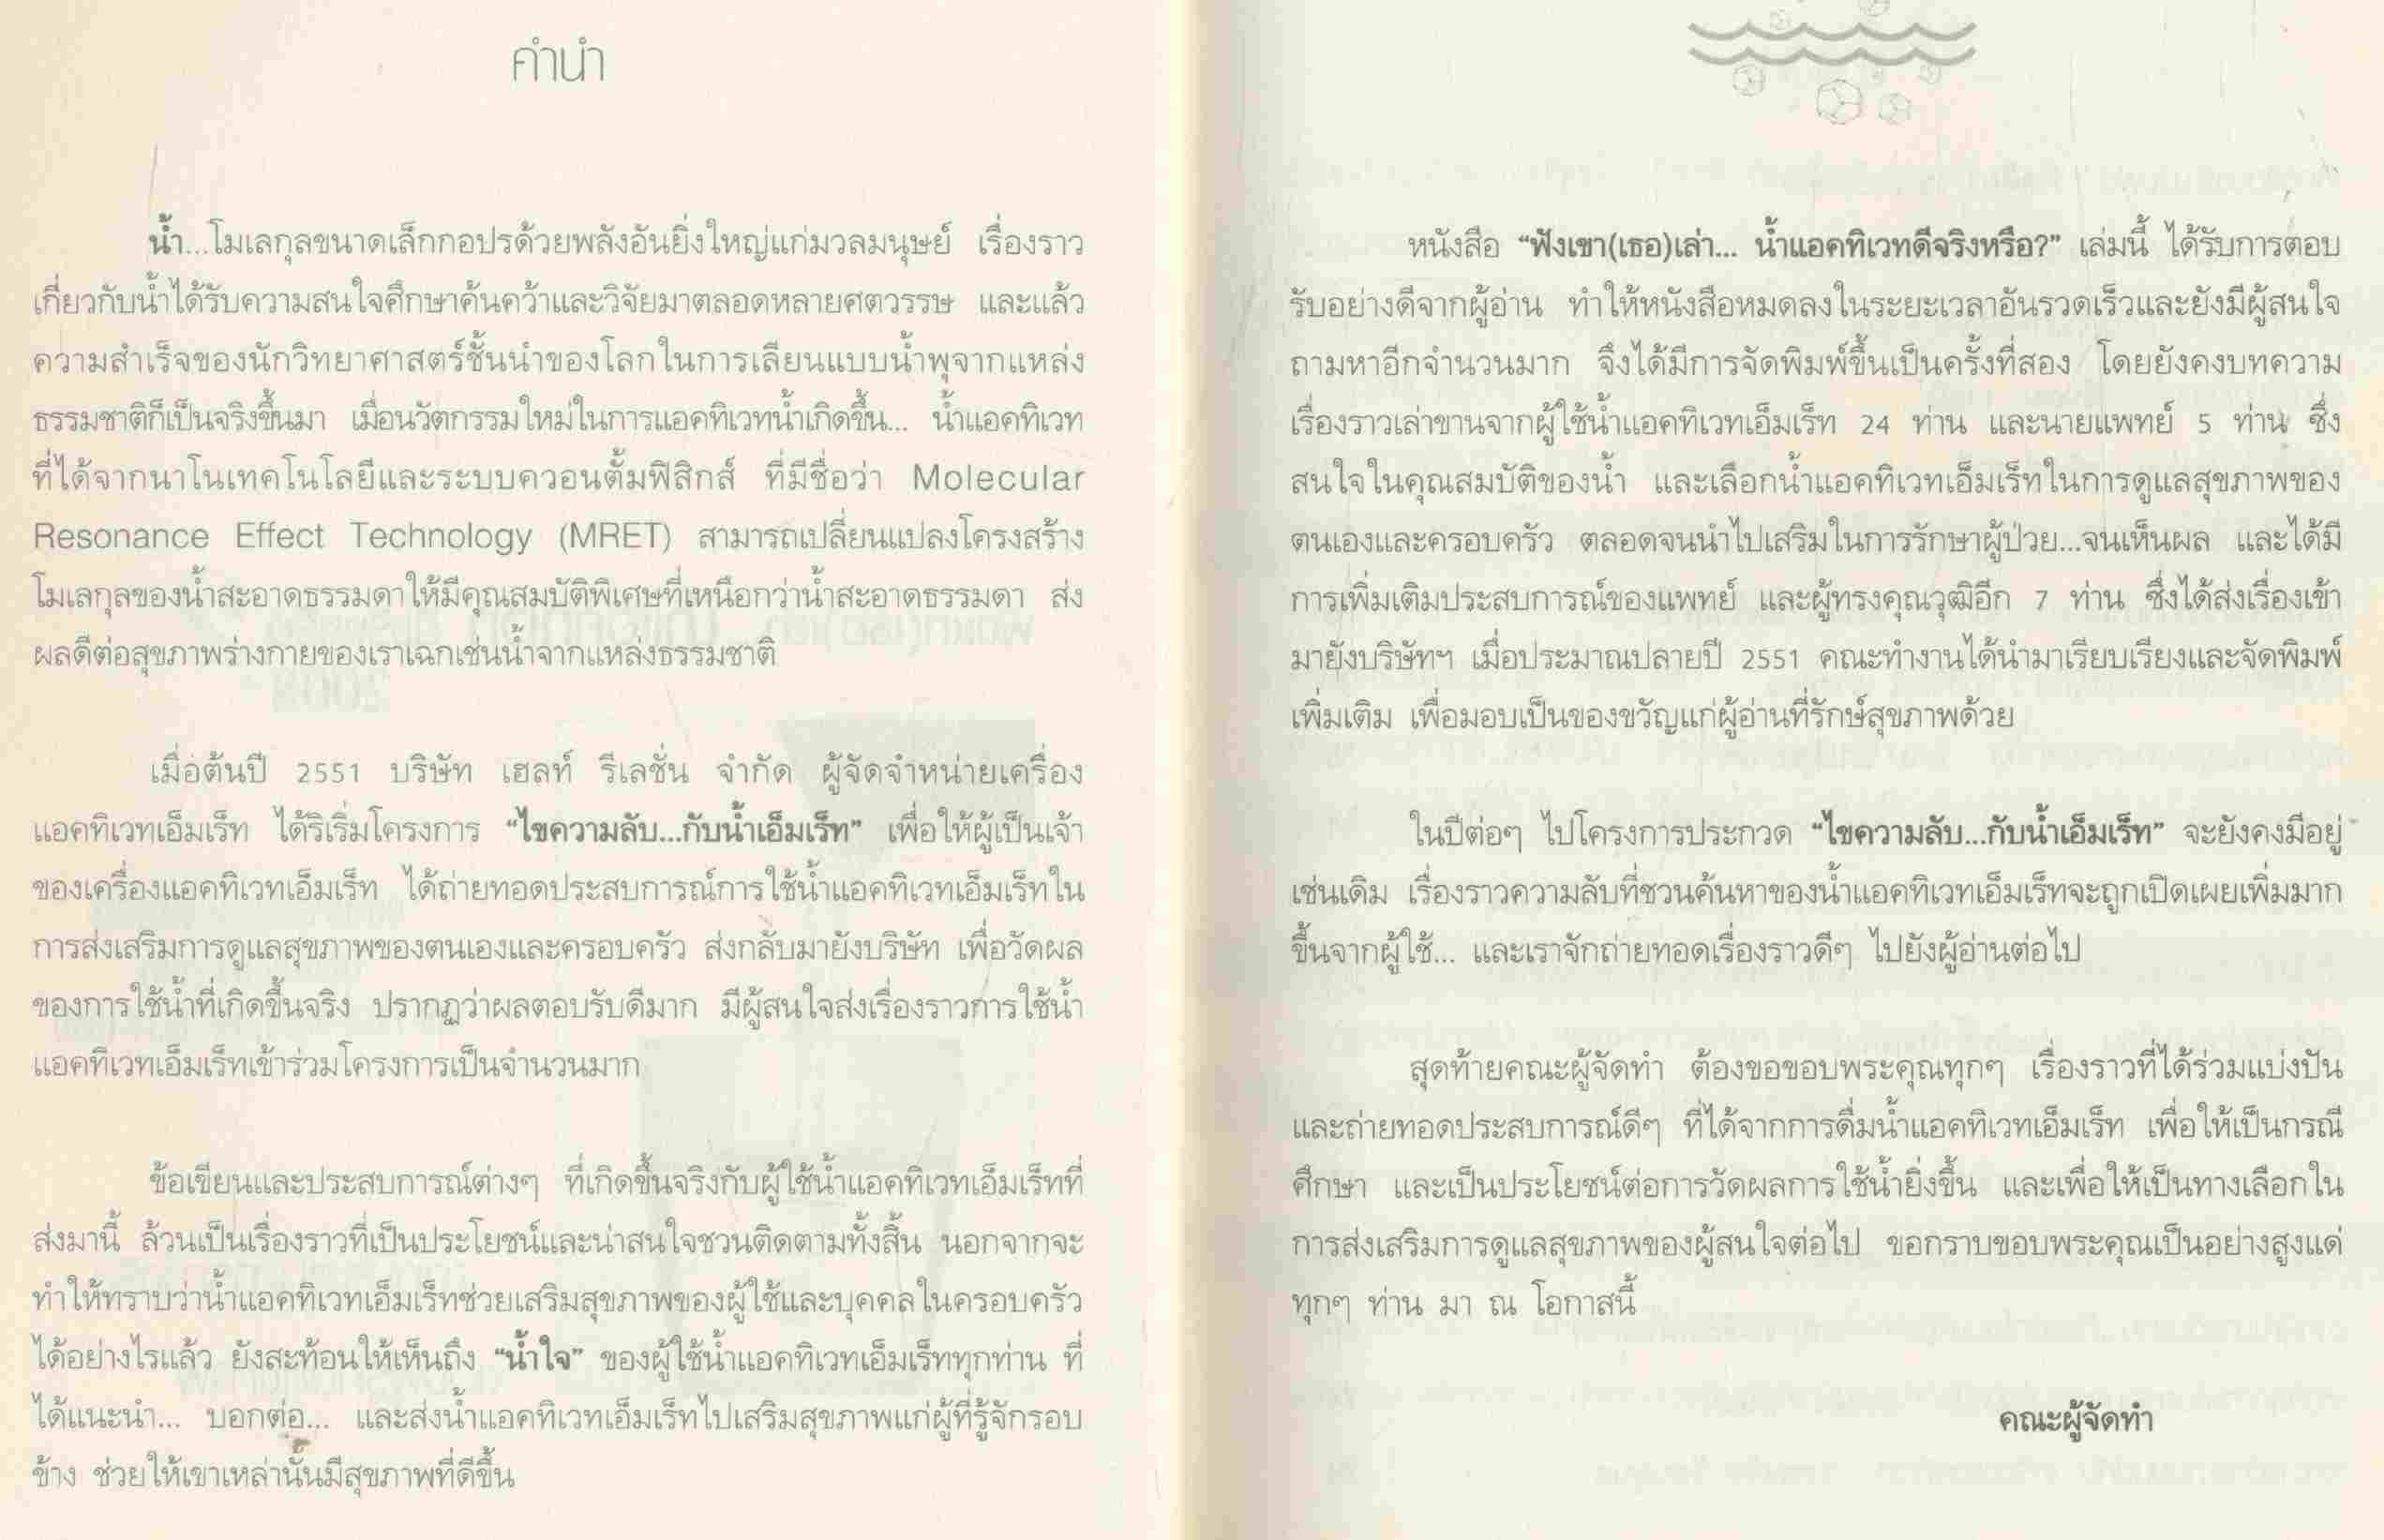 คำนำ
น้ำ...โมเลกุลขนาดเล็กกอปรด้วยพลังอันยิ่งใหญ่แก่มวลมนุษย์ เรื่องราว
เกี่ยวกับน้ำได้รับความสนใจศึกษาค้นคว้าและวิจัยมาตลอดหลายศตวรรษ และแล้ว
ความสำเร็จของนักวิทยาศาสตร์ชั้นนำของโลกในการเลียนแบบน้ำพุจากแหล่ง
ธรรมชาติก็เป็นจริงขึ้นมา เมื่อนวัตกรรมใหม่ในการแอคทิเวทน้ำเกิดขึ้น... น้ำแอคทิเวท
ที่ได้จากนาโนเทคโนโลยีและระบบควอนตั้มฟิสิกส์ ที่มีชื่อว่า Molecular
Resonance Effect Technology (MRET) สามารถเปลี่ยนแปลงโครงสร้าง
โมเลกุลของน้ำสะอาดธรรมดาให้มีคุณสมบัติพิเศษที่เหนือกว่าน้ำสะอาดธรรมดา ส่ง
ผลดีต่อสุขภาพร่างกายของเราเฉกเช่นน้ำจากแหล่งธรรมชาติ
เมื่อต้นปี 2551 บริษัท เฮลท์ รีเลชั่น จำกัด ผู้จัดจำหน่ายเครื่อง
แอคทิเวทเอ็มเร็ท ได้ริเริ่มโครงการ “ไขความลับ...กับน้ำเอ็มเร็ท” เพื่อให้ผู้เป็นเจ้า
ของเครื่องแอคทิเวทเอ็มเร็ท ได้ถ่ายทอดประสบการณ์การใช้น้ำแอคทิเวทเอ็มเร็ทใน
การส่งเสริมการดูแลสุขภาพของตนเองและครอบครัว ส่งกลับมายังบริษัท เพื่อวัดผล
ของการใช้น้ำที่เกิดขึ้นจริง ปรากฏว่าผลตอบรับดีมาก มีผู้สนใจส่งเรื่องราวการใช้น้ำ
แอคทิเวทเอ็มเร็ทเข้าร่วมโครงการเป็นจำนวนมาก
ข้อเขียนและประสบการณ์ต่างๆ ที่เกิดขึ้นจริงกับผู้ใช้น้ำแอคทิเวทเอ็มเร็ทที่
ส่งมานี้ ล้วนเป็นเรื่องราวที่เป็นประโยชน์และน่าสนใจชวนติดตามทั้งสิ้น นอกจากจะ
ทำให้ทราบว่าน้ำแอคทิเวทเอ็มเร็ทช่วยเสริมสุขภาพของผู้ใช้และบุคคลในครอบครัว
ได้อย่างไรแล้ว ยังสะท้อนให้เห็นถึง “น้ำใจ” ของผู้ใช้น้ำแอคทิเวทเอ็มเร็ททุกท่าน ที่
ได้แนะนำ... บอกต่อ... และส่งน้ำแอคทิเวทเอ็มเร็ทไปเสริมสุขภาพแก่ผู้ที่รู้จักรอบ
ข้าง ช่วยให้เขาเหล่านั้นมีสุขภาพที่ดีขึ้น
หนังสือ “ฟังเขา(เธอ)เล่า... น้ำแอคทิเวทดีจริงหรือ?” เล่มนี้ ได้รับการตอบ
รับอย่างดีจากผู้อ่าน ทำให้หนังสือหมดลงในระยะเวลาอันรวดเร็วและยังมีผู้สนใจ
ถามหาอีกจำนวนมาก จึงได้มีการจัดพิมพ์ขึ้นเป็นครั้งที่สอง โดยยังคงบทความ
เรื่องราวเล่าขานจากผู้ใช้น้ำแอคทิเวทเอ็มเร็ท 24 ท่าน และนายแพทย์ 5 ท่าน ซึ่ง
สนใจในคุณสมบัติของน้ำ และเลือกน้ำแอคทิเวทเอ็มเร็ทในการดูแลสุขภาพของ
ตนเองและครอบครัว ตลอดจนนำไปเสริมในการรักษาผู้ป่วย...จนเห็นผล และได้มี
การเพิ่มเติมประสบการณ์ของแพทย์ และผู้ทรงคุณวุฒิอีก 7 ท่าน ซึ่งได้ส่งเรื่องเข้า
มายังบริษัทฯ เมื่อประมาณปลายปี 2551 คณะทำงานได้นำมาเรียบเรียงและจัดพิมพ์
เพิ่มเติม เพื่อมอบเป็นของขวัญแก่ผู้อ่านที่รักษ์สุขภาพด้วย
ในปีต่อๆ ไปโครงการประกวด “ไขความลับ...กับน้ำเอ็มเร็ท” จะยังคงมีอยู่
เช่นเดิม เรื่องราวความลับที่ชวนค้นหาของน้ำแอคทิเวทเอ็มเร็ทจะถูกเปิดเผยเพิ่มมาก
ขึ้นจากผู้ใช้... และเราจักถ่ายทอดเรื่องราวดีๆ ไปยังผู้อ่านต่อไป
สุดท้ายคณะผู้จัดทำ ต้องขอขอบพระคุณทุกๆ เรื่องราวที่ได้ร่วมแบ่งปัน
และถ่ายทอดประสบการณ์ดีๆ ที่ได้จากการดื่มน้ำแอคทิเวทเอ็มเร็ท เพื่อให้เป็นกรณี
ศึกษา และเป็นประโยชน์ต่อการวัดผลการใช้น้ำยิ่งขึ้น และเพื่อให้เป็นทางเลือกใน
การส่งเสริมการดูแลสุขภาพของผู้สนใจต่อไป ขอกราบขอบพระคุณเป็นอย่างสูงแด่
ทุกๆ ท่าน มา ณ โอกาสนี้
คณะผู้จัดทำ